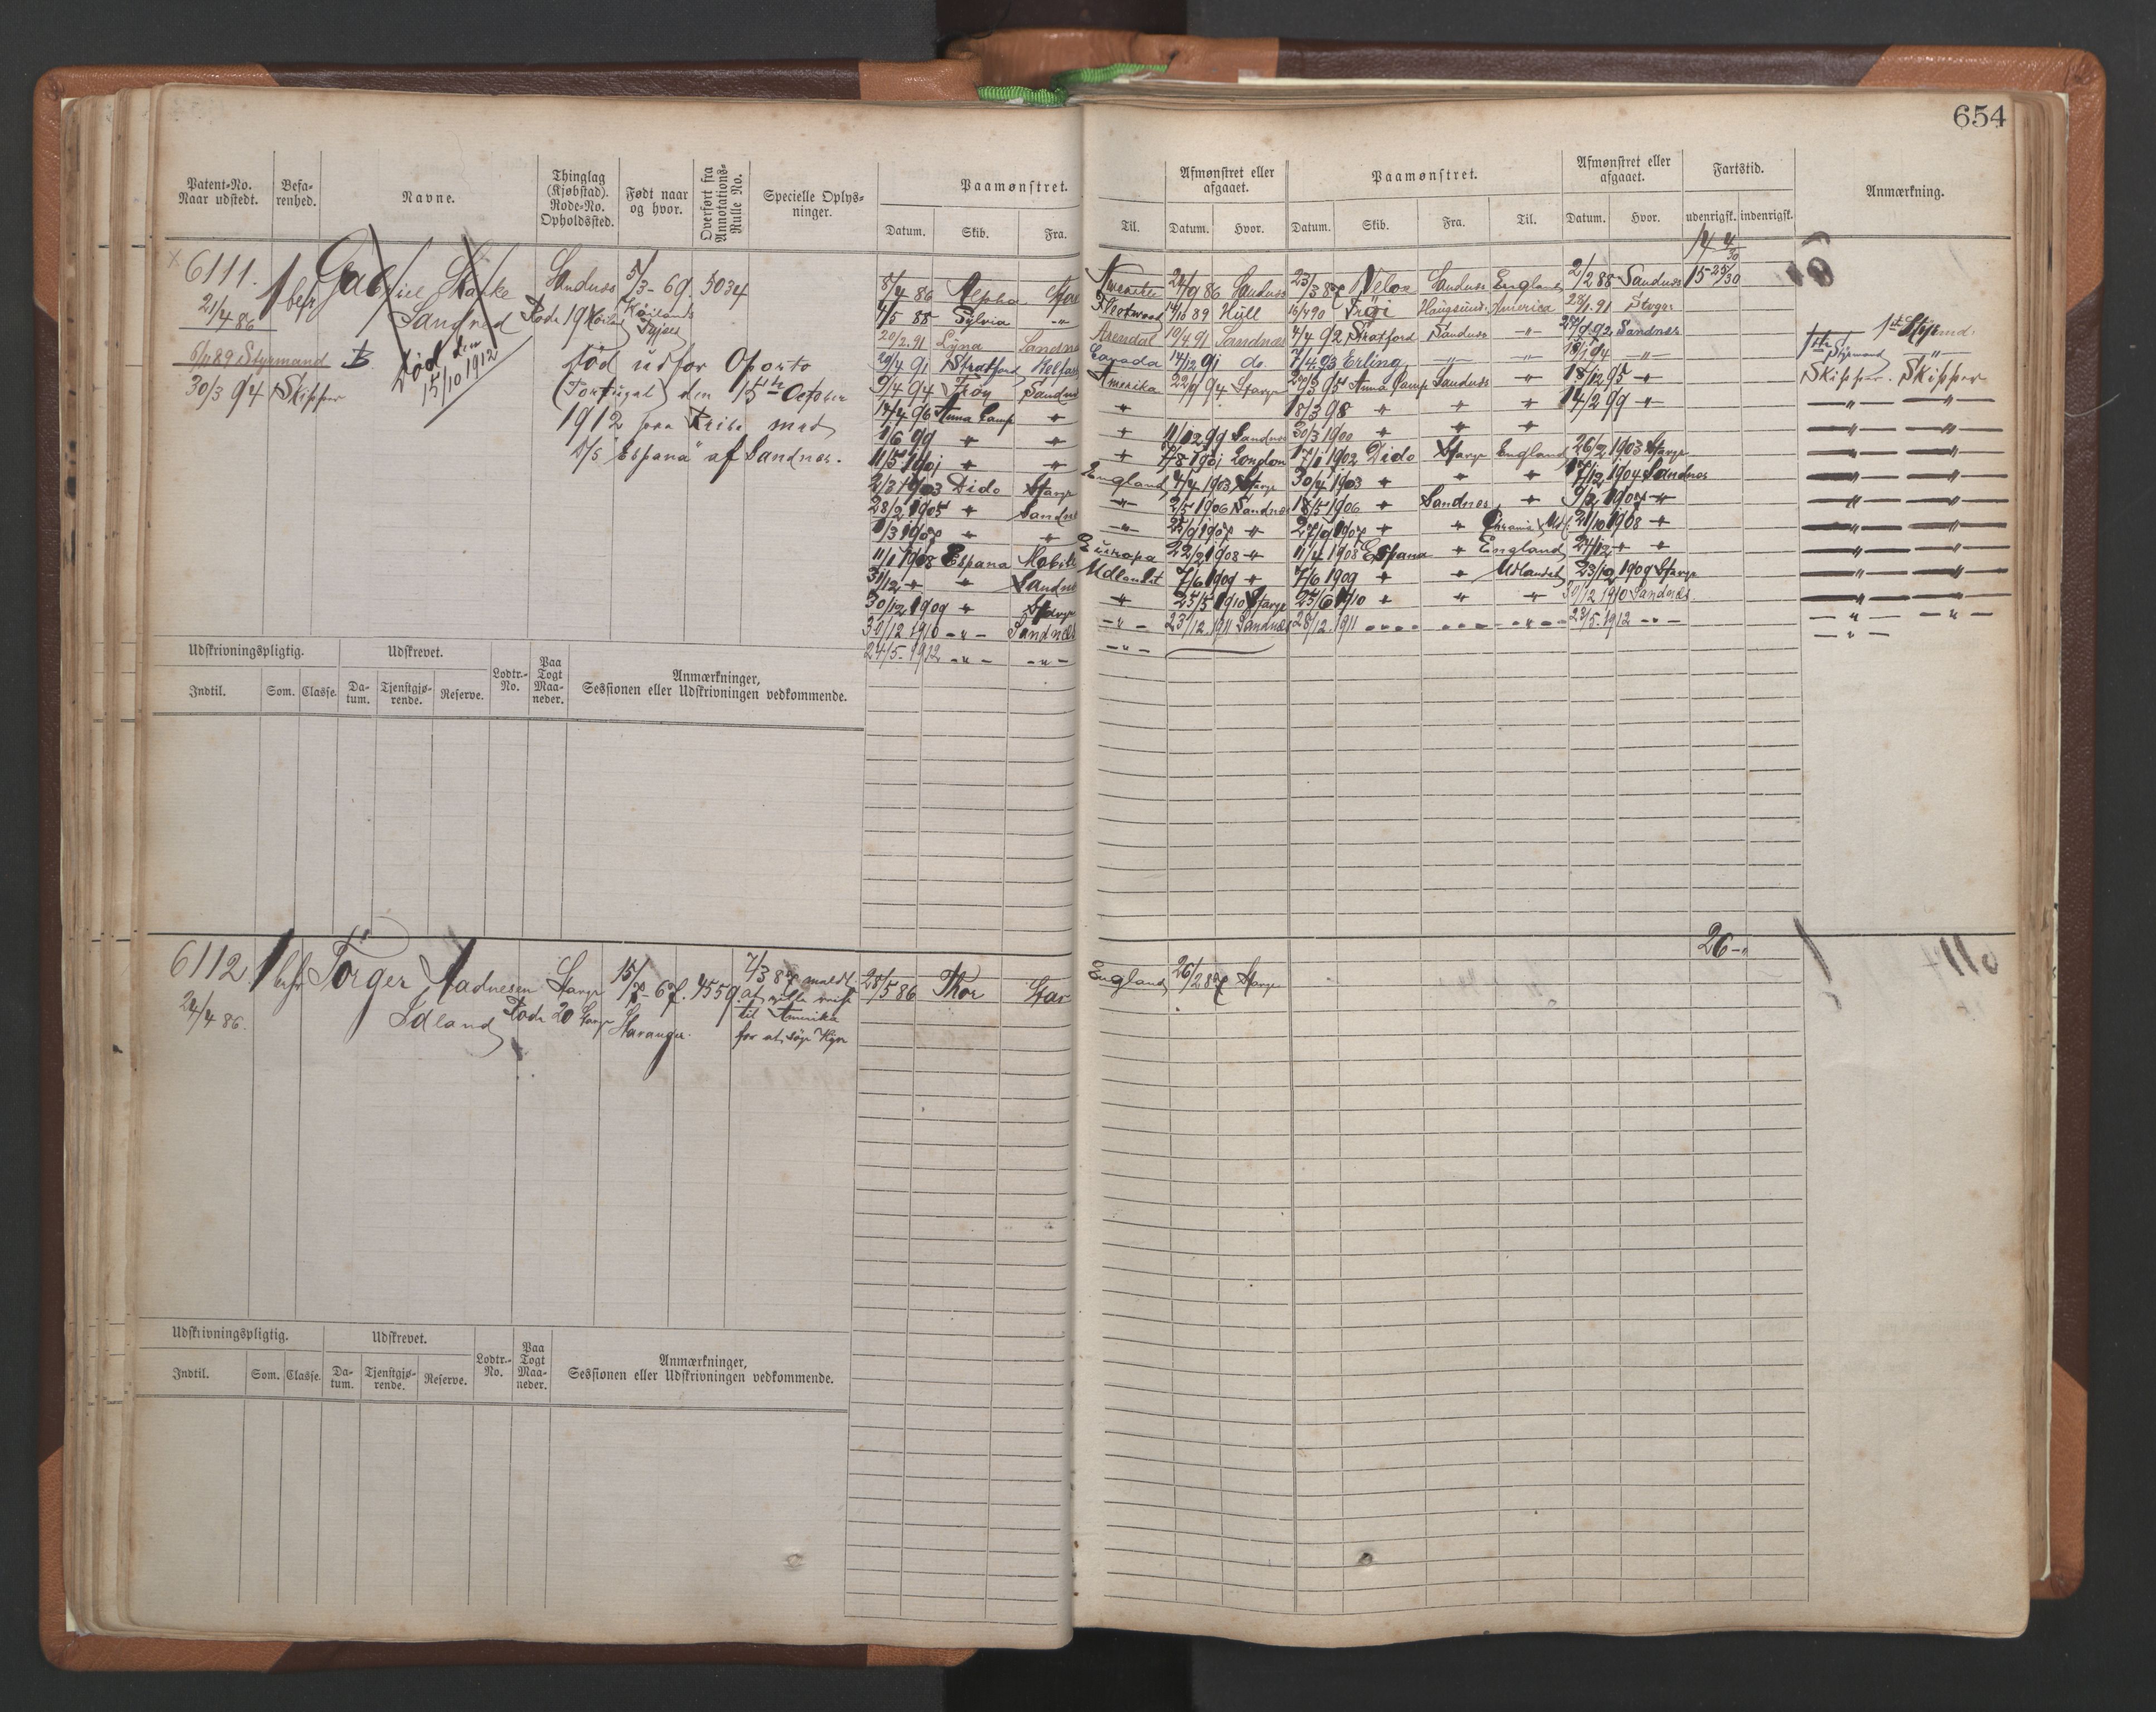 654
Patent-No. Naar udstedt.
Befa-renhed.
Navne.
Thinglag (Kjøbstad). Rode-No. Opholdssted.
Født naar og hvor.
Overført fra Annotations-Rulle No.
Specielle Oplys-ninger.
Paamønstret.
Datum. Skib. Fra. Til.
Afmønstret eller afgaaet.
Datum. Hvor.
Paamønstret.
Datum. Skib. Fra. Til.
Afmønstret eller afgaaet.
Datum. Hvor.
Fartstid.
udenrigsk. indenrigsk.
Anmærkning.
6111. 1 bef Sandnes 5/3-69. 5034
21/4 86 Sandved Rode 19
6/4 89 Styrmand Død den 15/10 1912
30/3 94 Skipper
Død udfor Oporto
(Portugal) den 15th October
1912 paa Reise med
S/S "Espana" af Sandnes.
8/4 86 Alpha Stav Amerika 24/9 86 Sandnes 23/3 87 Velox Sandnes England 2/2 88 Sandnes 15-25/30
4/5 88 Sylvia -"- Fleetwood 14/10 89 Hull 16/4 90 Frigi Haugesund Amerika
20/2 91 Lyna Sandnes Arendal 10/4 91 Sandnes 4/4 92 Stratford Sandnes -"- Sandnes 1st Styrmd.
29/4 91 Stratford Canada 14/12 91 do. 7/4 93 Erling -"- -"- -"- 1ste Styrmand -"-
9/4 94 Frøy Sandnes Amerika 22/9 94 Stavgr Anna Camp Sandnes " 18/12 95 " Skipper. Skipper
14/4 96 Anna Camp " " 18/3 98 " " " 14/2 99 " -"- -"-
1/6 99 " " " 11/12 99 Sandnes 30/3 1900 " " " -"- -"-
11/5 1901 " " " 7/8 1901 London 17/1 1902 Dido Stavgr England 26/2 1903 Stavgr -"- -"-
2/3 1903 Dido Stavgr England 4/4 1903 Stavgr 30/4 1903 " " " 17/12 1904 Sandnes -"- -"-
28/2 1905 " Sandnes -"- 2/5 1906 Sandnes 18/5 1906 " Sandnes " 9/2 1907 " -"- -"-
1/3 1907 " " -"- 25/9 1907 " 27/9 1907 " " 21/10 1908 " -"- -"-
11/1 1908 Espana Mobile Europa 22/2 1908 " 11/4 1908 Espana " England 24/12 " " -"- -"-
31/12 " " Sandnes Udlandet 7/6 1909 " 7/6 1909 " " Udlandet 23/12 1909 Stavgr -"- -"-
30/12 1909 " Stavgr " 25/5 1910 Stavgr 25/6 1910 " " " 30/12 1910 Sandnes. -"- -"-
30/12 1910 -"- Sandnes -"- 23/12 1911 Sandnes 28/12 1911 -"- -"- -"- 23/5 1912 -"- -"- -"-
24/5-1912 -"- -"- -"- -"-
Udskrivningspligtig.
Udskrevet.
Indtil. Som. Classe. Da-tum. Tjenstgjø-rende. Reserve.
Lodtr.-No.
Paa Togt Maa-neder.
Anmærkninger, Sessionen eller Udskrivningen vedkommende.
6112 1 bef Torger Aadnesen Stavgr 15/7-67. 4559. 7/3 87 meldt 28/5 86 Thor Stav England 26/2 87 Stavgr 26-"
24/4 86. Idland Rode 20 Stavgr Stavanger. at ville reise
til Amerika
for at søge Hyre
Udskrivningspligtig.
Udskrevet.
Indtil. Som. Classe. Da-tum. Tjenstgjø-rende. Reserve.
Lodtr.-No.
Paa Togt Maa-neder.
Anmærkninger, Sessionen eller Udskrivningen vedkommende.